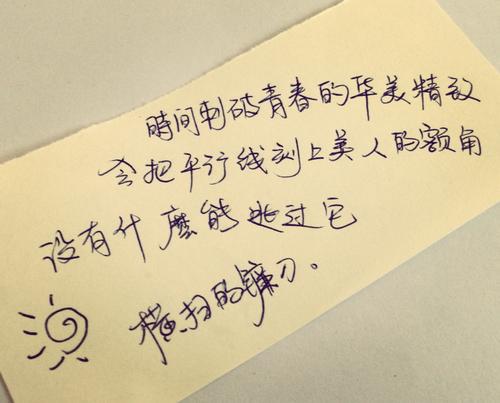 時间刺破青春的华美精致
会把平行线刻上美人的额角
没有什麼能逃过它
横扫的镰刀。